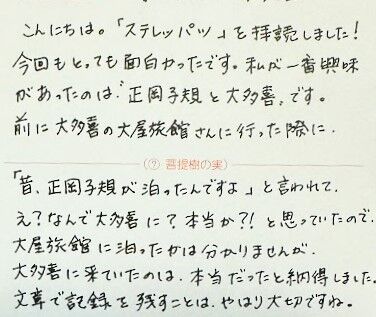 こんにちは。「ステレッパツ」を拝読しました！
今回もとっても面白かったです。私が一番興味
があったのは、"正岡子規と大多喜"です。
前に大多喜の大屋旅館さんに行った際に、
（② 菩提樹の実）
「昔、正岡子規が泊ったんですよ」と言われて、
え？なんで大多喜に？本当か？！と思っていたので、
大屋旅館に泊ったかは分かりませんが、
大多喜に来ていたのは、本当だったと納得しました。
文章で記録を残すことは、やはり大切ですね。